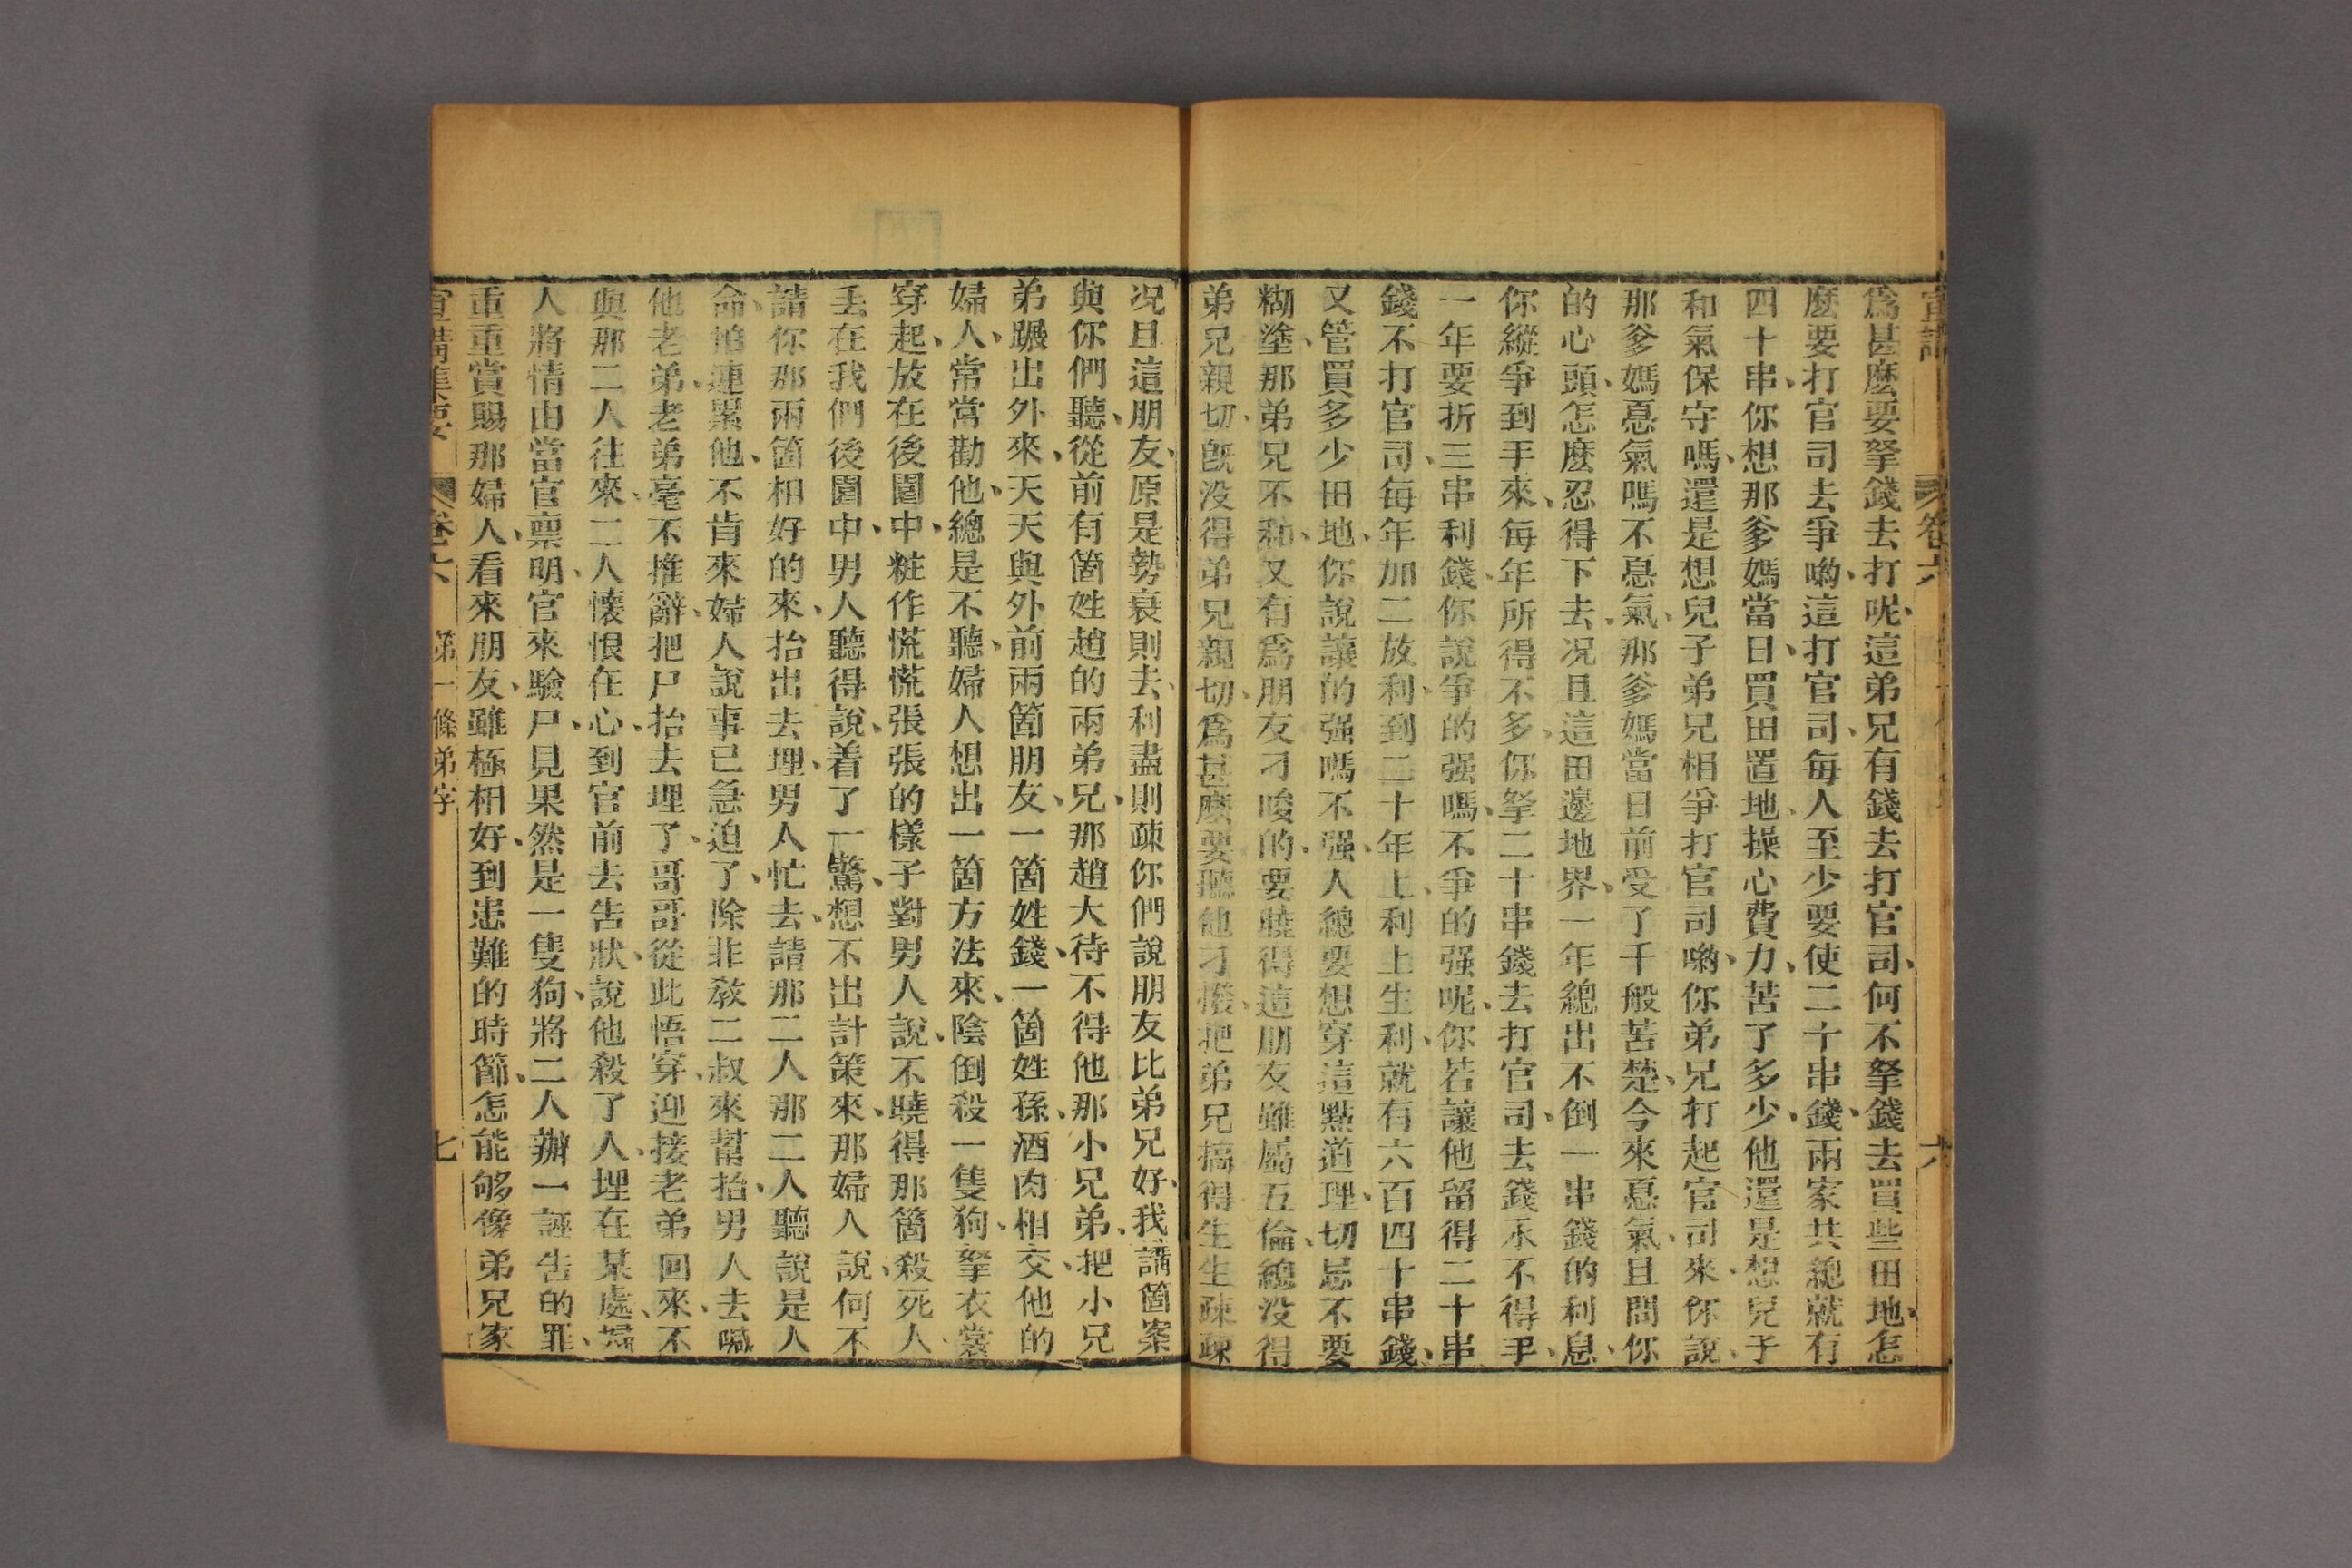 爲甚麽要拏錢去打呢、這弟兄有錢去打官司、何不拏錢去買些田地、怎
麽要打官司去爭喲、這打官司、每人至少要使二十串錢、兩家共總就有
四十串、你想那爹媽當日、買田置地、操心費力、苦了多少、他還是想兒子
和氣保守嗎、還是想兒子弟兄相爭打官司喲、你弟兄打起官司來、你說、
那爹媽惪氣嗎不惪氣、那爹媽當日前受了千般苦楚、今來惪氣、且問你
的心頭、怎麽忍得下去、况且這田邊地界、一年總出不倒一串錢的利息、
你縱爭到手來、每年所得不多、你拏二十串錢去打官司、去錢禾不得乎、
一年要折三串利錢、你說爭的强嗎、不爭的强呢、你若讓他留得二十串
錢不打官司、每年加二放利、到二十年上、利上生利、就有六百四十串錢、
又管買多少田地、你說讓的强嗎不强、人總要想穿這點道理、切忌不要
糊塗、那弟兄不和、又有爲朋友刁唆的、要曉得這朋友雖屬五倫、總没得
弟兄親切、旣没得弟兄親切、爲甚麽要聽他刁撥、把弟兄搞得生生疎疎
况且這朋友、原是勢衰則去、利盡則疎、你們說朋友比弟兄好、我講箇案
與你們聽、從前有箇姓趙的兩弟兄、那趙大待不得他那小兄弟、把小兄
弟蹍出外來、天天與外前兩箇朋友、一箇姓錢、一箇姓孫、酒肉相交、他的
婦人、常常勸他、總是不聽、婦人想出一箇方法來、陰倒殺一隻狗、拏衣裳
穿起、放在後園中、粧作慌慌張張的樣子、對男人說、不曉得那箇殺死人、
丟在我們後園中、男人聽得說、着了一驚、想不出計策來、那婦人說、何不
請你那兩箇相好的來、抬出去埋、男人忙去、請那二人、那二人聽說是人
命、怕連累他、不肯來、婦人說事已急迫了、除非教二叔來幫抬、男人去喊
他老弟、老弟毫不推辭、把尸抬去埋了、哥哥從此悟穿、迎接老弟回來、不
與那二人往來、二人懷恨在心、到官前去告狀、說他殺了人、埋在某處、婦
人將情由當官禀明、官來驗尸、見果然是一隻狗、將二人辦一誣告的罪、
重重賞賜那婦人、看來朋友、雖極相好、到患難的時節、怎能够像弟兄家
宣講集要 卷六 第一條弟字 七